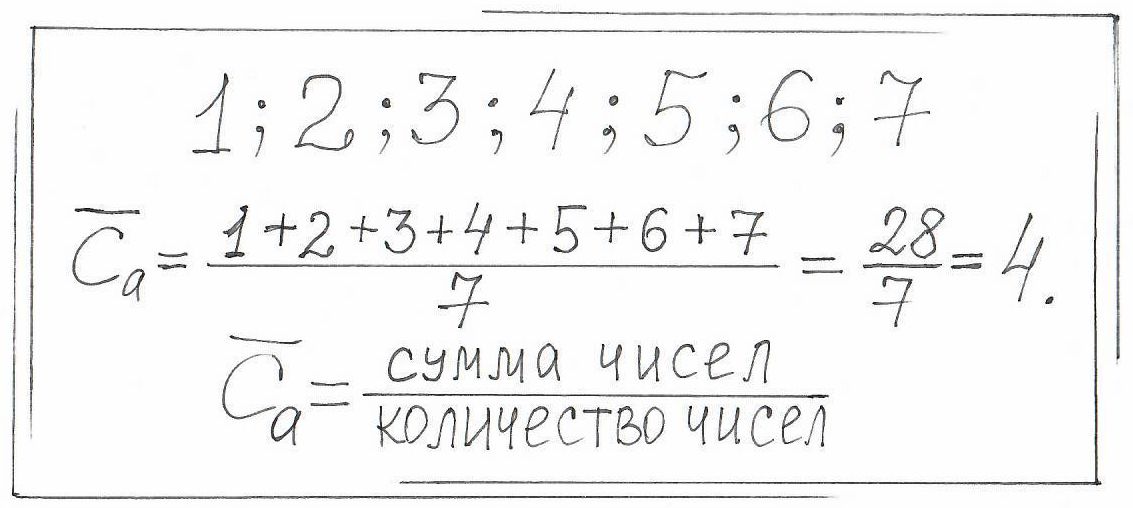 1; 2; 3; 4; 5; 6; 7
C̅ₐ = (1+2+3+4+5+6+7)/7 = 28/7 = 4.
C̅ₐ = сумма чисел / количество чисел